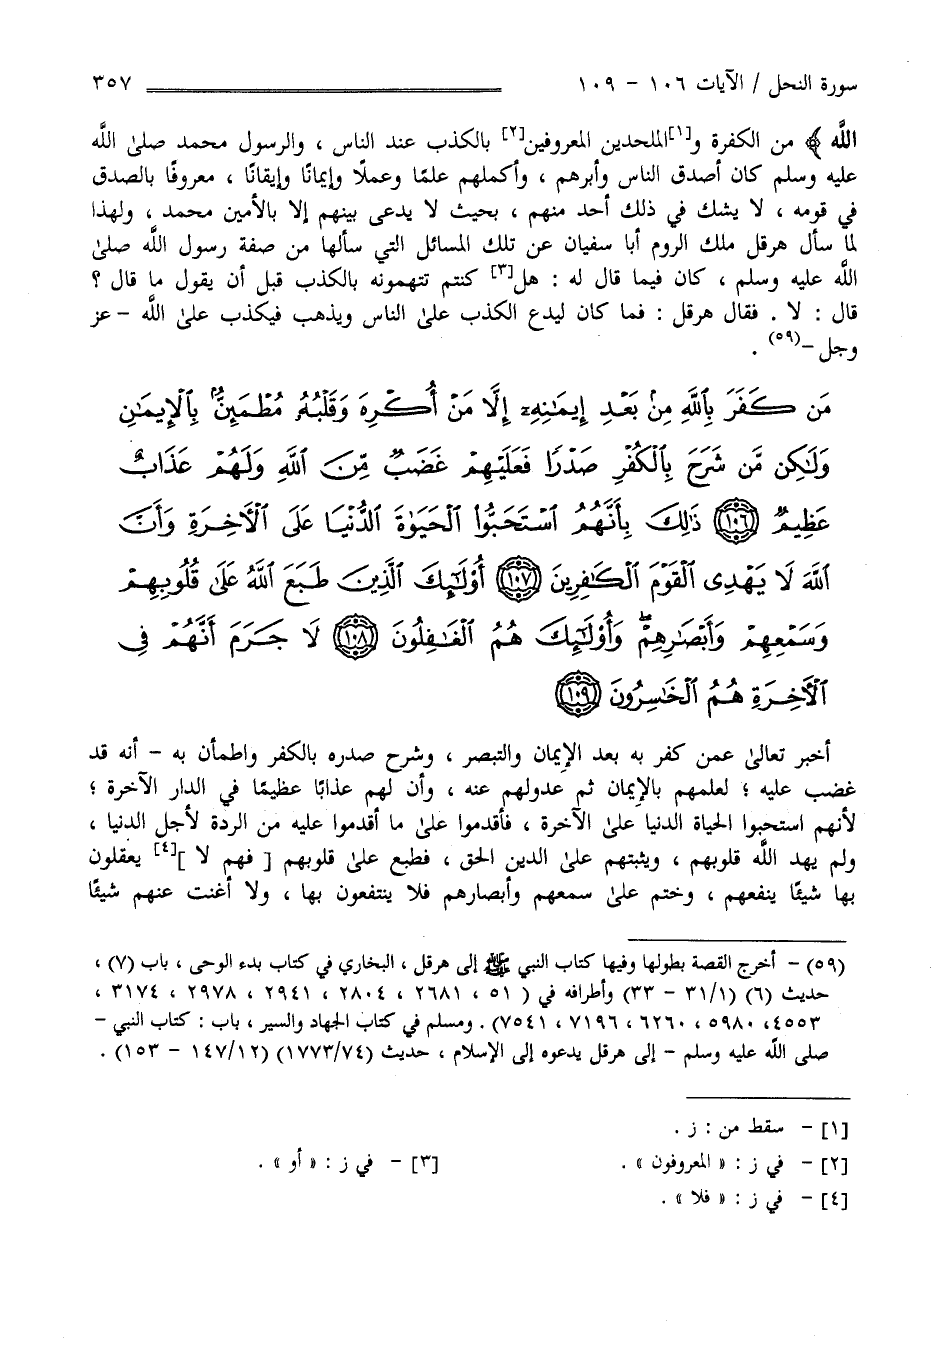 سورة النحل / الآيات ١٠٦ - ١٠٩ ٣٥٧
اللَّه ﴾ من الكفرة و[١]الملحدين المعروفين[٢] بالكذب عند الناس ، والرسول محمد صلىٰ اللَّه
عليه وسلم كان أصدق الناس وأبرهم ، وأكملهم علمًا وعملًا وإيمانًا وإيقانًا ، معروفًا بالصدق
في قومه ، لا يشك في ذلك أحد منهم ، بحيث لا يدعى بينهم إلا بالأمين محمد ، ولهذا
لما سأل هرقل ملك الروم أبا سفيان عن تلك المسائل التي سألها من صفة رسول اللَّه صلىٰ
اللَّه عليه وسلم ، كان فيما قال له : هل[٣] كنتم تتهمونه بالكذب قبل أن يقول ما قال ؟
قال : لا . فقال هرقل : فما كان ليدع الكذب علىٰ الناس ويذهب فيكذب علىٰ اللَّه - عز
وجل -(٥٩) .
مَن كَفَرَ بِٱللَّهِ مِنۢ بَعْدِ إِيمَٰنِهِۦٓ إِلَّا مَنْ أُكْرِهَ وَقَلْبُهُۥ مُطْمَئِنٌّۢ بِٱلْإِيمَٰنِ
وَلَٰكِن مَّن شَرَحَ بِٱلْكُفْرِ صَدْرًا فَعَلَيْهِمْ غَضَبٌ مِّنَ ٱللَّهِ وَلَهُمْ عَذَابٌ
عَظِيمٌ ١٠٦ ذَٰلِكَ بِأَنَّهُمُ ٱسْتَحَبُّوا۟ ٱلْحَيَوٰةَ ٱلدُّنْيَا عَلَى ٱلْءَاخِرَةِ وَأَنَّ
ٱللَّهَ لَا يَهْدِى ٱلْقَوْمَ ٱلْكَٰفِرِينَ ١٠٧ أُو۟لَٰٓئِكَ ٱلَّذِينَ طَبَعَ ٱللَّهُ عَلَىٰ قُلُوبِهِمْ
وَسَمْعِهِمْ وَأَبْصَٰرِهِمْ ۖ وَأُو۟لَٰٓئِكَ هُمُ ٱلْغَٰفِلُونَ ١٠٨ لَا جَرَمَ أَنَّهُمْ فِى
ٱلْءَاخِرَةِ هُمُ ٱلْخَٰسِرُونَ ١٠٩
أخبر تعالىٰ عمن كفر به بعد الإيمان والتبصر ، وشرح صدره بالكفر واطمأن به - أنه قد
غضب عليه ؛ لعلمهم بالإيمان ثم عدولهم عنه ، وأن لهم عذابًا عظيمًا في الدار الآخرة ؛
لأنهم استحبوا الحياة الدنيا علىٰ الآخرة ، فأقدموا علىٰ ما أقدموا عليه من الردة لأجل الدنيا ،
ولم يهد اللَّه قلوبهم ، ويثبتهم علىٰ الدين الحق ، فطبع علىٰ قلوبهم [ فهم لا ][٤] يعقلون
بها شيئًا ينفعهم ، وختم علىٰ سمعهم وأبصارهم فلا ينتفعون بها ، ولا أغنت عنهم شيئًا
(٥٩) - أخرج القصة بطولها وفيها كتاب النبي ﷺ إلى هرقل ، البخاري في كتاب بدء الوحى ، باب (٧) ،
حديث (٦) (٣١/١ - ٣٣) وأطرافه في ( ٥١ ، ٢٦٨١ ، ٢٨٠٤ ، ٢٩٤١ ، ٢٩٧٨ ، ٣١٧٤ ،
٤٥٥٣، ٥٩٨٠ ، ٦٢٦٠ ، ٧١٩٦ ، ٧٥٤١) . ومسلم في كتاب الجهاد والسير ، باب : كتاب النبي -
صلى اللَّه عليه وسلم - إلى هرقل يدعوه إلى الإسلام ، حديث (١٧٧٣/٧٤) (١٤٧/١٢ - ١٥٣) .
[١] - سقط من : ز .
[٢] - في ز : « المعروفون » . [٣] - في ز : « أو » .
[٤] - في ز : « فلا » .